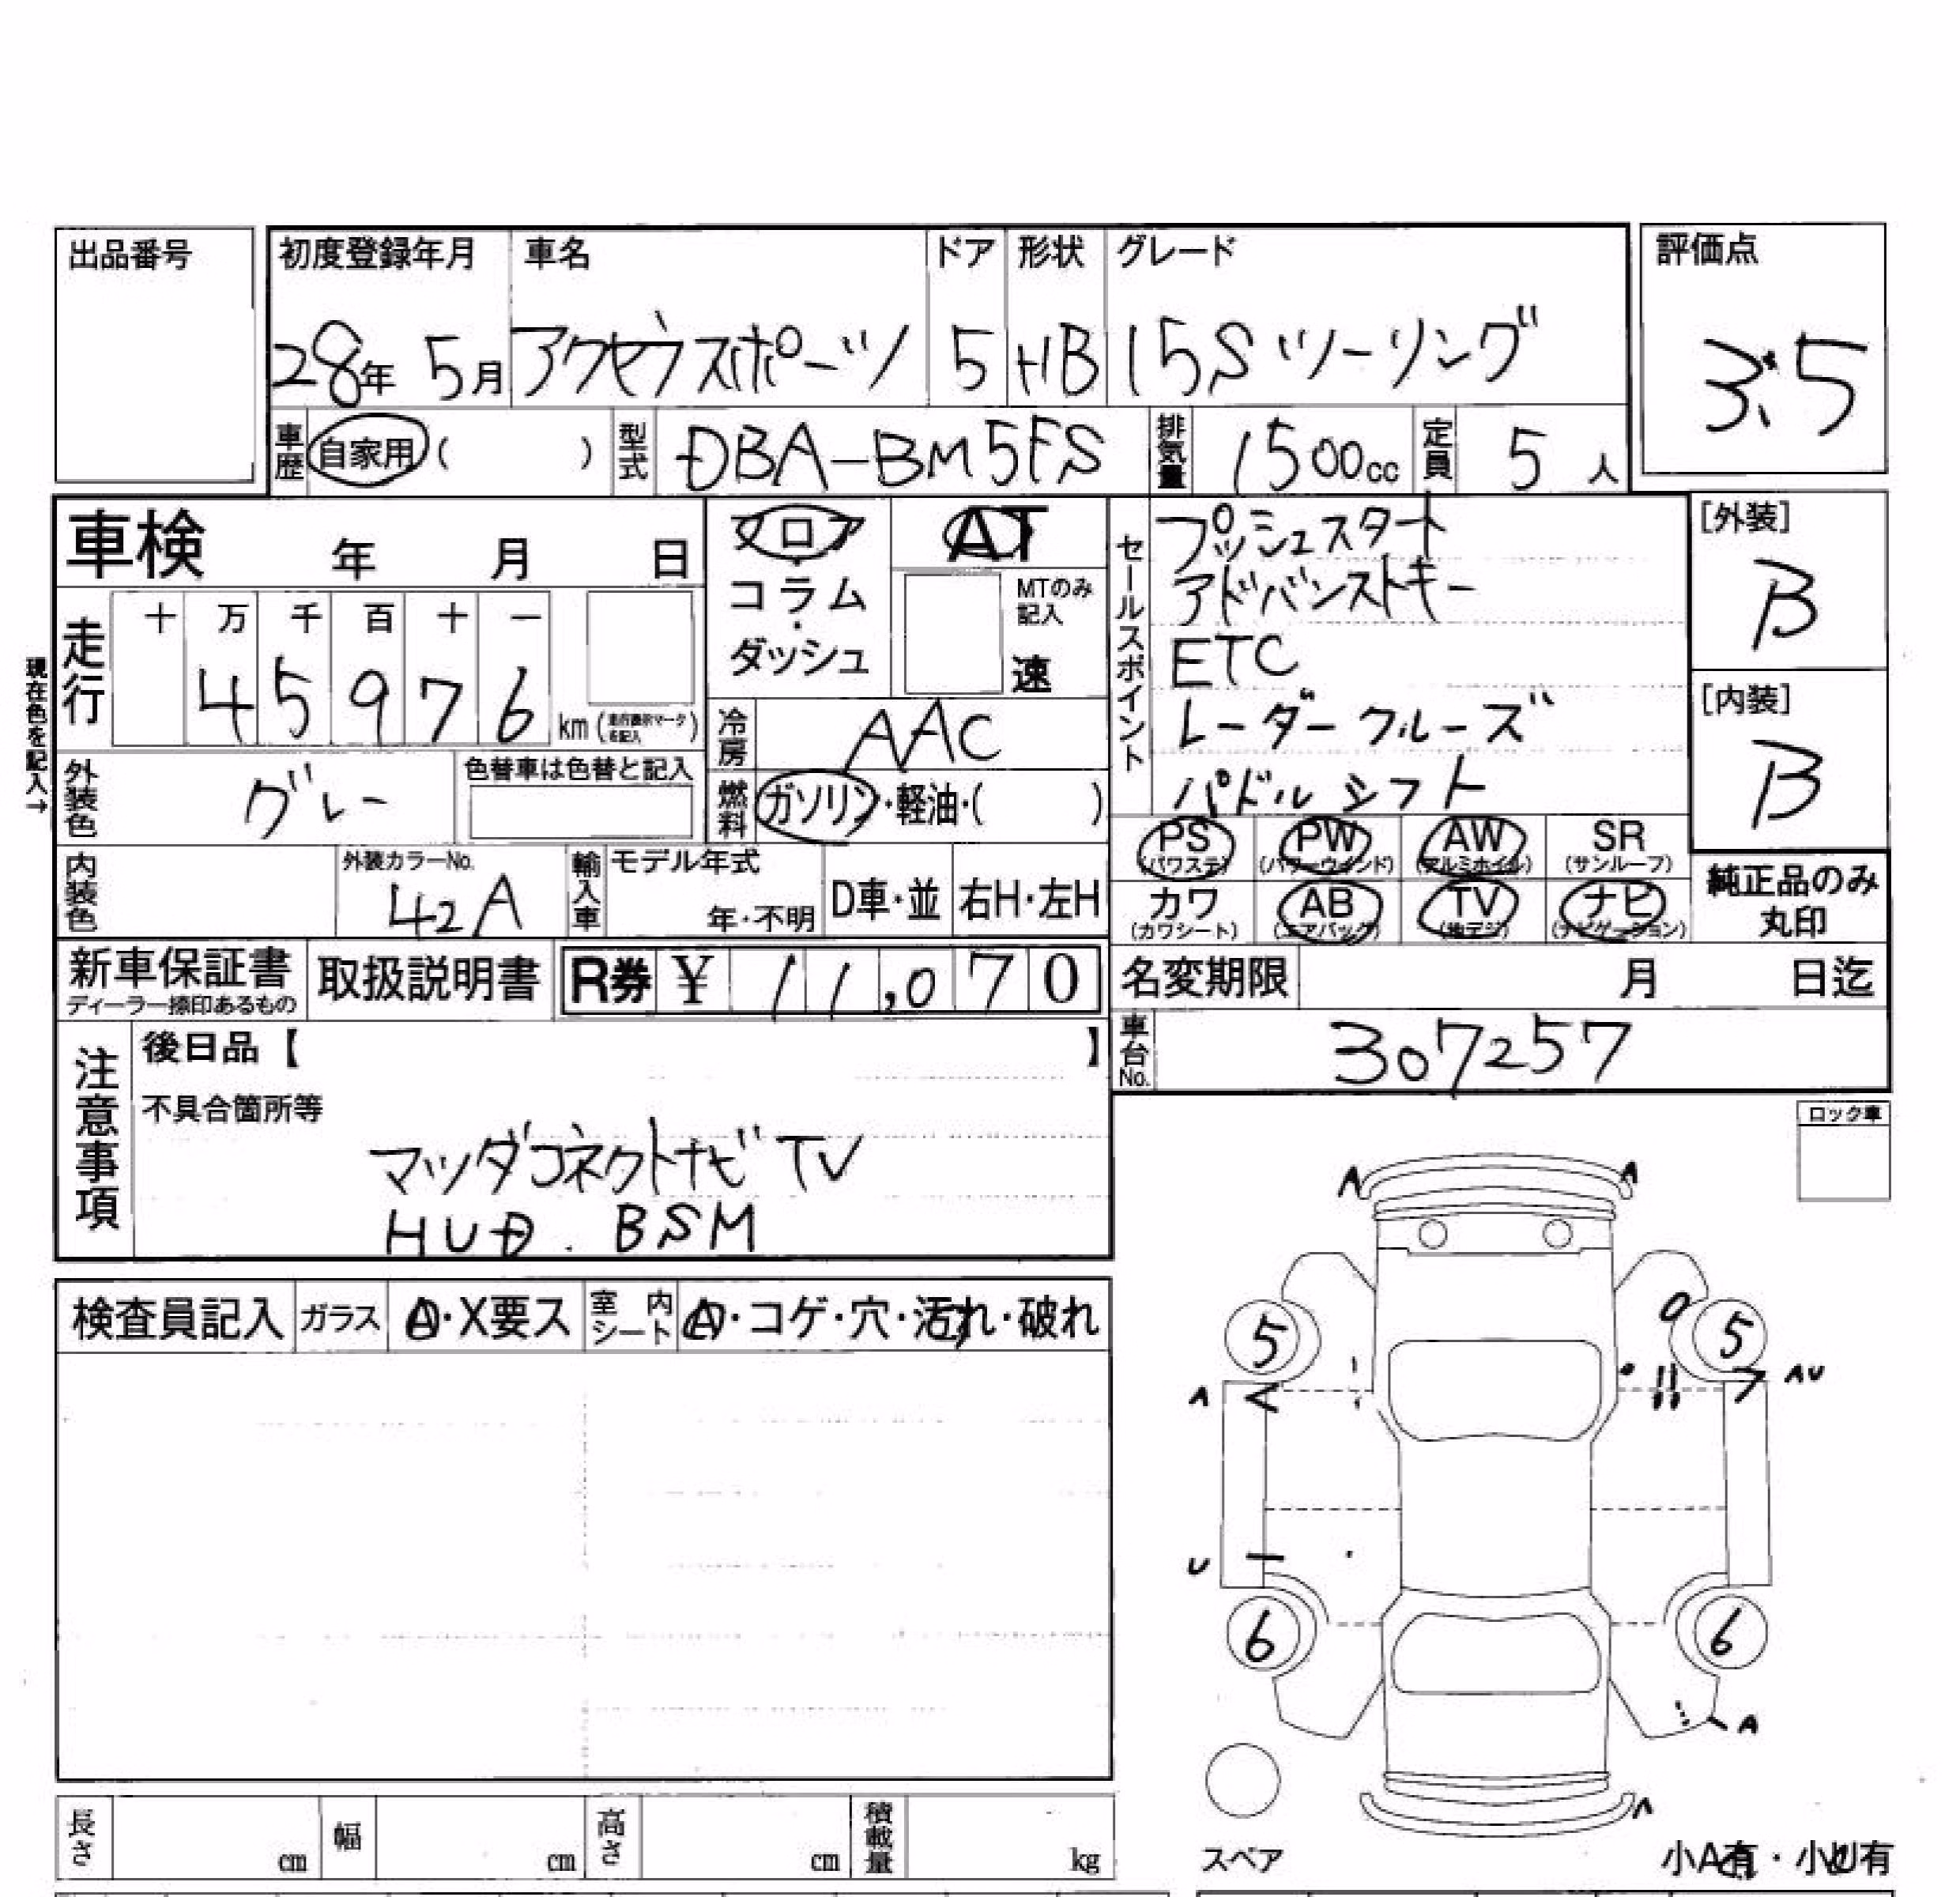 出品番号
初度登録年月 車名 ドア 形状 グレード
28年 5月 アクセラスポーツ 5 HB 15Sツーリング
評価点
3.5
車歴 自家用 ( ) 型式 DBA-BM5FS 排気量 1500cc 定員 5人
車検 年 月 日
フロア・コラム・ダッシュ
AT
MTのみ記入
速
現在色を記入→
走行 十 万 千 百 十 一
45976 km (走行表示マークを記入)
冷房 AAC
燃料 ガソリン・軽油・( )
外装色 グレー 色替車は色替と記入
内装色 外装カラーNo. 42A 輸入車 モデル年式 年・不明 D車・並 右H・左H
セールスポイント
プッシュスタート
アドバンストキー
ETC
レーダークルーズ
パドルシフト
[外装]
B
[内装]
B
PS (パワステ) PW (パワーウインド) AW (アルミホイル) SR (サンルーフ)
カワ (カワシート) AB (エアバッグ) TV (地デジ) ナビ (ナビゲーション)
純正品のみ
丸印
新車保証書 ディーラー捺印あるもの 取扱説明書 R券 ¥ 11,070
名変期限 月 日迄
車台No. 307257
注意事項
後日品【 】
不具合箇所等
マツダコネクトナビTV
HUD. BSM
ロック車
検査員記入 ガラス A・X要ス 室内シート A・コゲ・穴・汚れ・破れ
A A
5 5
A AU
U
6 6
A
A
スペア
小A有・小U有
長さ cm 幅 cm 高さ cm 積載量 kg